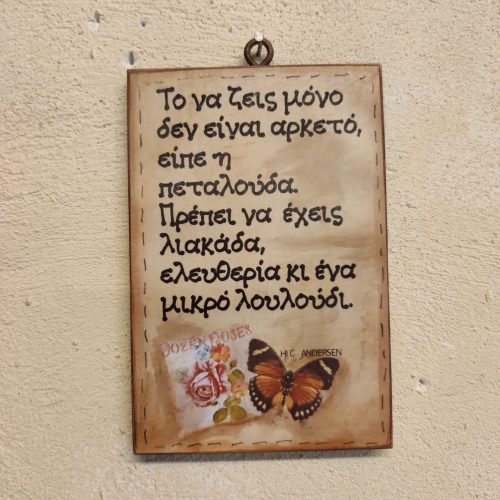 Το να ζεις μόνο
δεν είναι αρκετό,
είπε η
πεταλούδα.
Πρέπει να έχεις
λιακάδα,
ελευθερία κι ένα
μικρό λουλούδι.
DOZEN ROSES
H.C. ANDERSEN